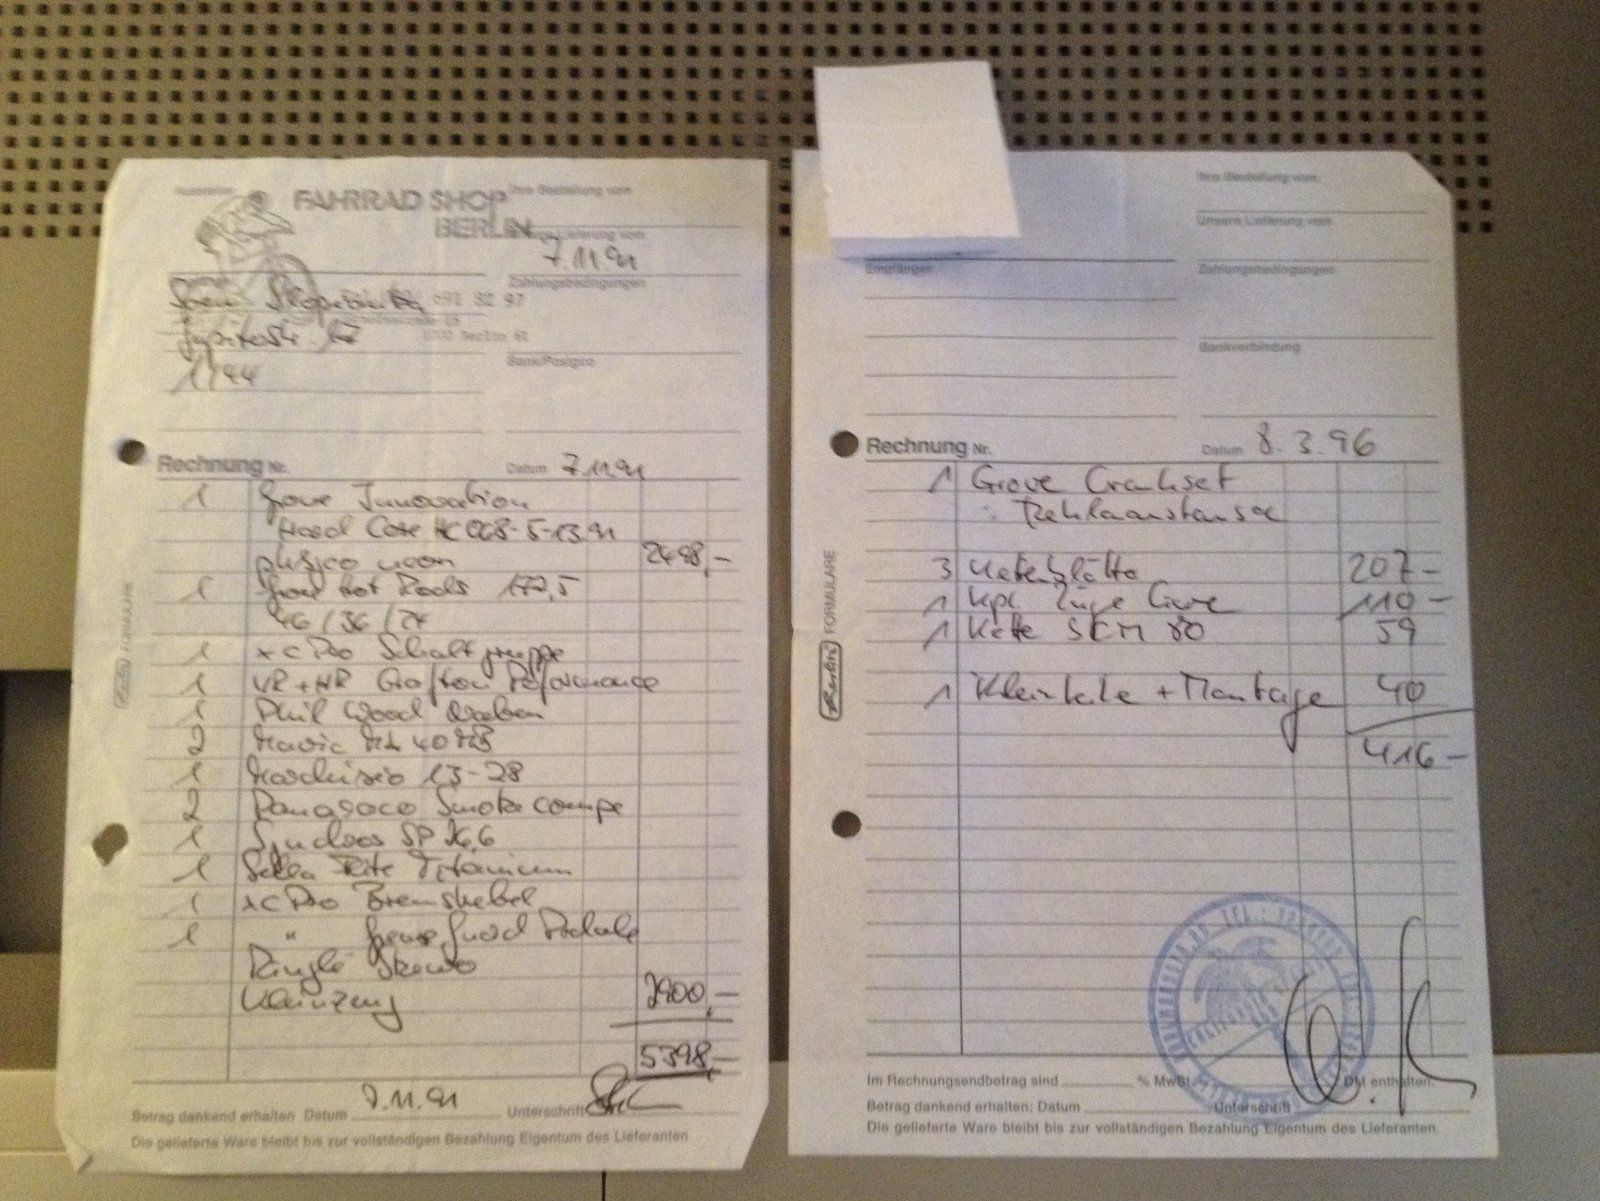 Aussteller
FAHRRAD SHOP
BERLIN
Ihre Bestellung vom
Lieferung vom
7.11.91
Zahlungsbedingungen
691 82 97
Berlin 61
17
1144
Bank/Postgiro
Rechnung Nr.
Datum 7.11.91
1 Grove Innovation
Hard Core HC 008-5-13.91
2498,-
1 Grove Hot Rods 172,5
46/36/24
1 XC Pro Schaltgruppe
1 VR + HR Grafton Performance
1 Phil Wood Naben
2 Mavic 40
1 13-28
2 Panaraco Smoke compe
1 Syncros SP 26,6
1 Sella Titanium
1 XC Pro Bremshebel
1 " Grease Guard Pedale
Ringlé
Kleinzeug
2900,-
5398,-
Betrag dankend erhalten Datum 7.11.91 Unterschrift
Die gelieferte Ware bleibt bis zur vollständigen Bezahlung Eigentum des Lieferanten
FORMULARE
Ihre Bestellung vom
Unsere Lieferung vom
Empfänger
Zahlungsbedingungen
Bankverbindung
Rechnung Nr.
Datum 8.3.96
1 Grove Crankset
Reklamation
3 Kettenblätter 207-
1 Kpl. Züge Gore 110-
1 Kette 59
1 Kleinteile + Montage 40
416-
Im Rechnungsendbetrag sind % MwSt. DM enthalten.
Betrag dankend erhalten; Datum Unterschrift
Die gelieferte Ware bleibt bis zur vollständigen Bezahlung Eigentum des Lieferanten.
Herlitz FORMULARE